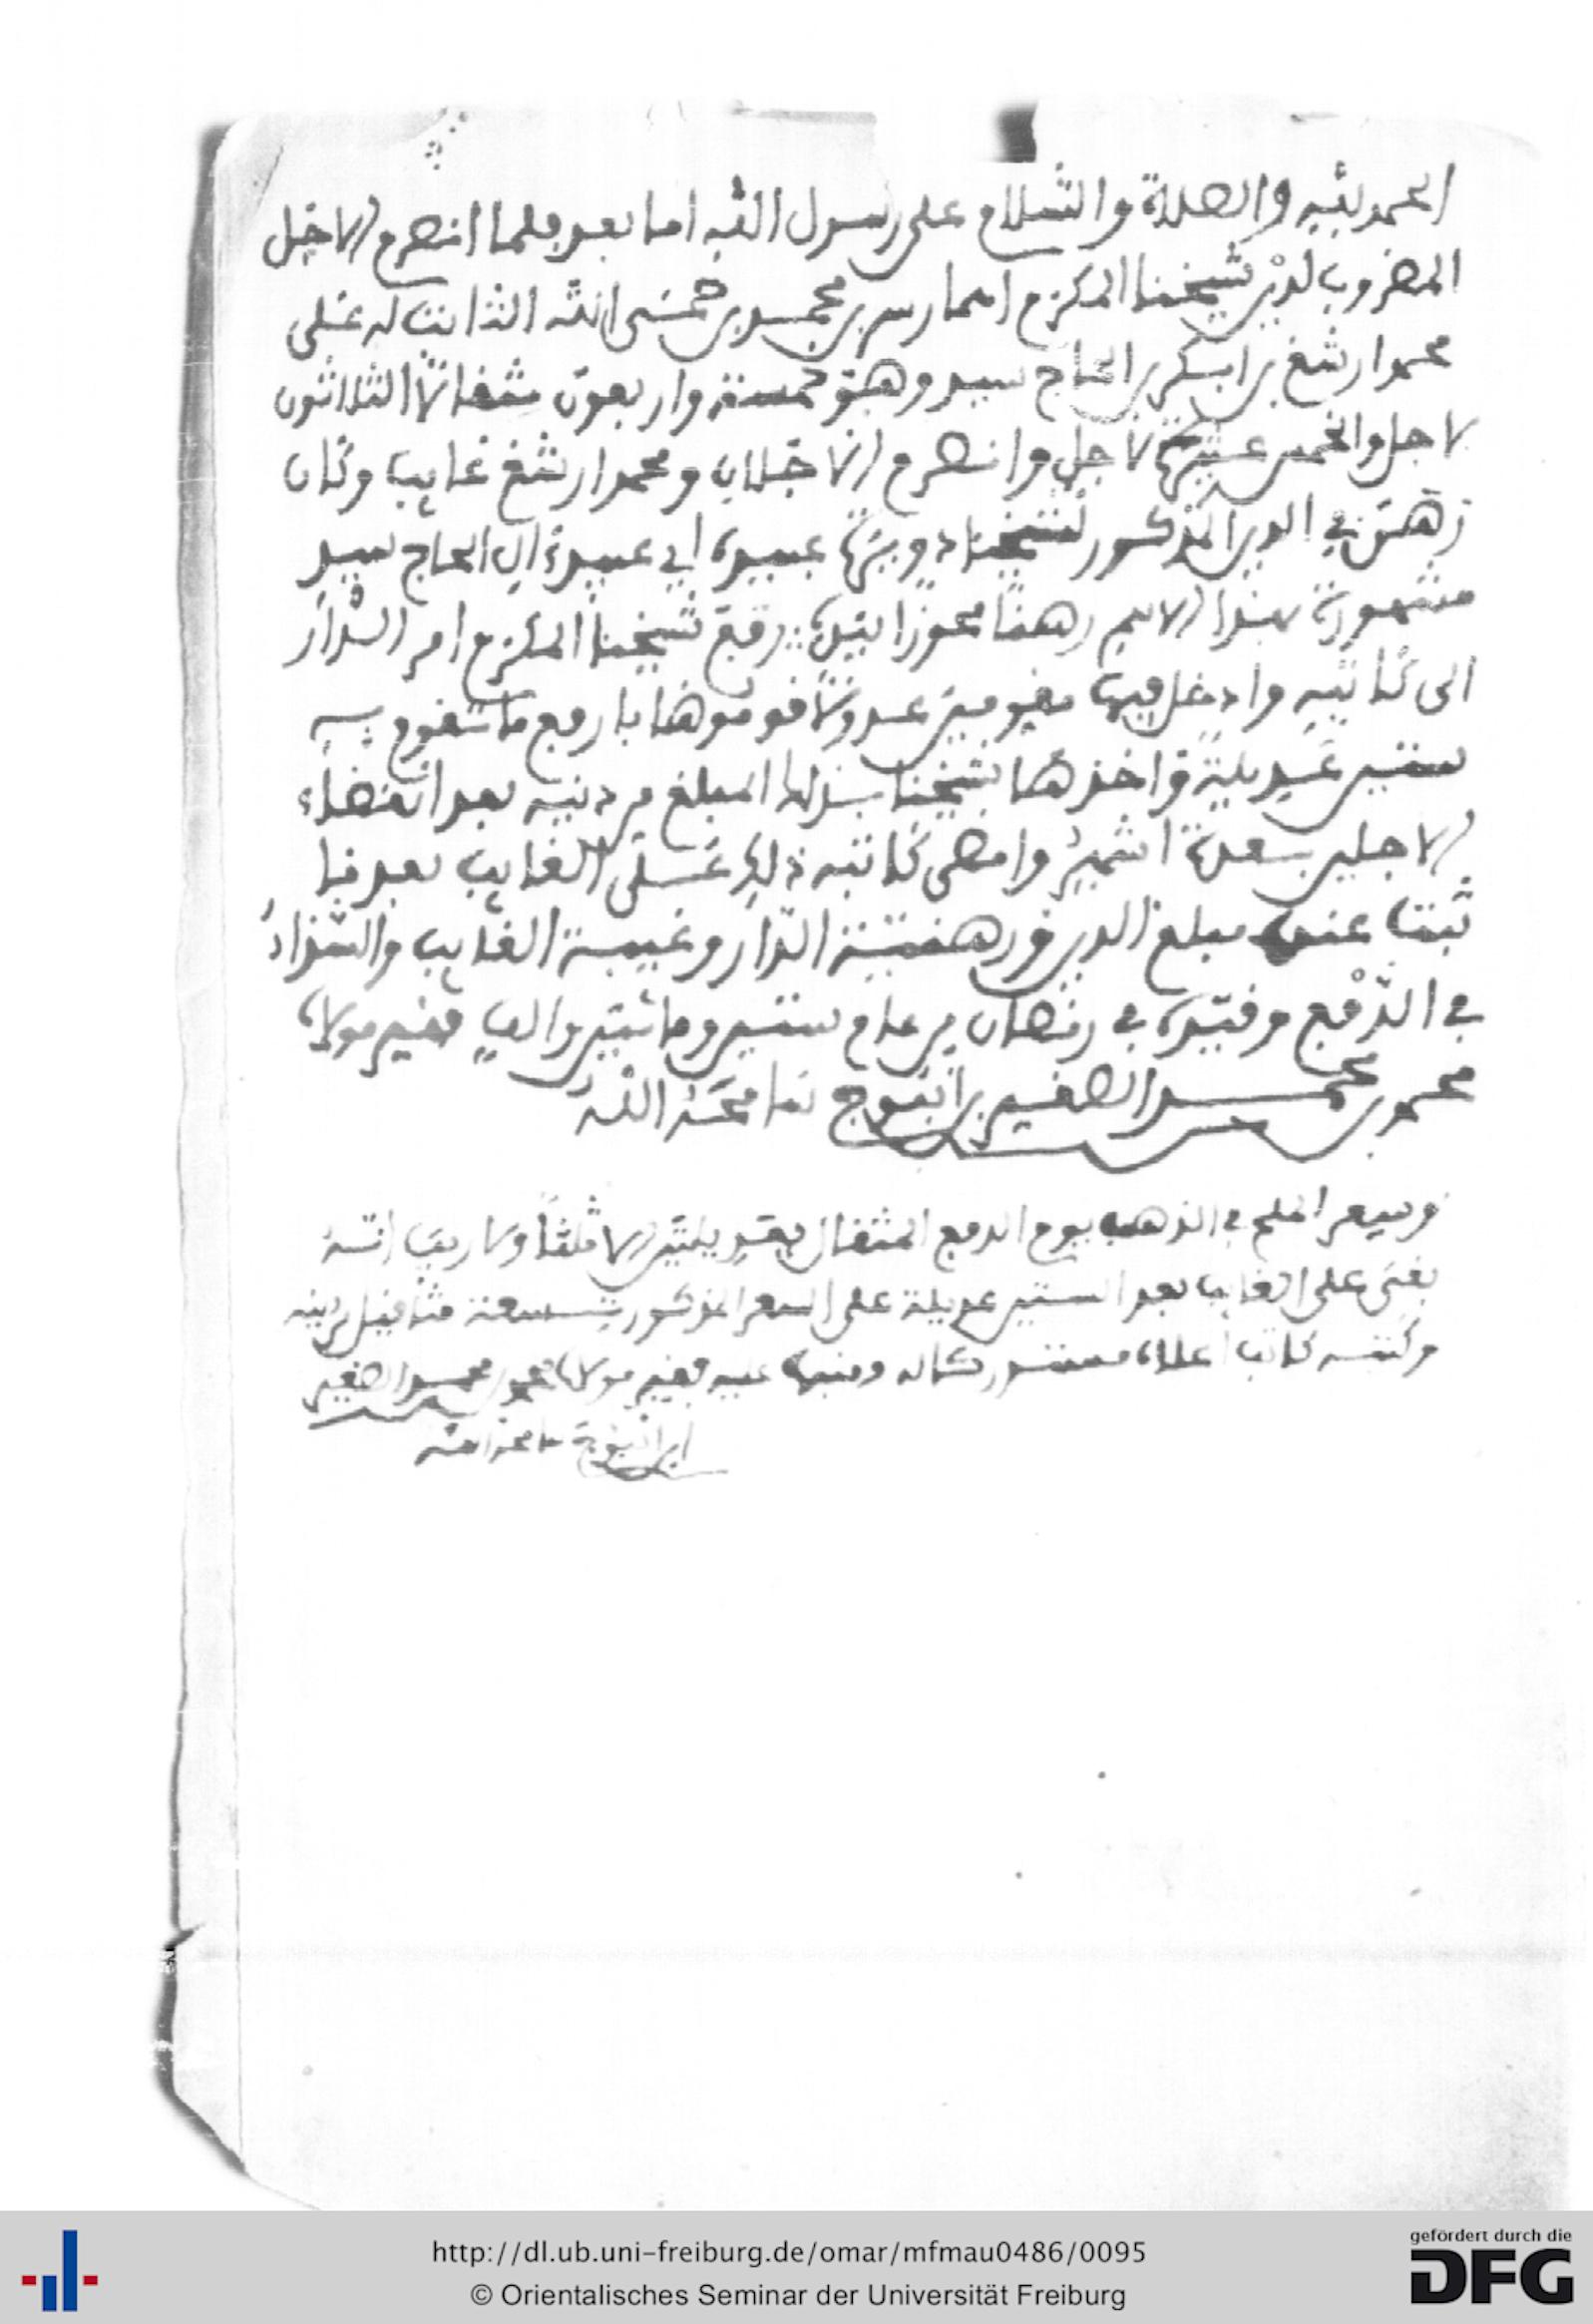 الحمد لله والصلاة والسلام على رسول الله اما بعد فلما انصرم الاجل
المضروب لدين شيخنا المكرم محمد بن الله الثابت له على
محمد بن الحاج سيد وهو خمسة واربعون مثقالا الثلاثون
لاجل والخمس عشرة لاجل وانصرم الاجلان ومحمد غايب وكان
رهن في الدين المذكور لشيخنا دويرة عبيدة اي عبيدة ال الحاج سيد
مشهورة بهذا الاسم رهنا محوزا بيده رفع شيخنا المكرم امر الدار
الى كاتبه وادخل فيها مقومين عدولا فقوموها بارفع ما تقوم به
ستين عديلة فاخذها شيخنا بذلك المبلغ من دينه بعد انقضاء
الاجلين بسعدة اشهر وامضى كاتبه ذلك على الغايب بعد ما
ثبت عنده مبلغ الدين ورهنية الدار وغيبة الغايب والسداد
في الدفع وقيده في رمضان من عام ستين ومائتين والف فقير مولاه
محمد بن محمد الصغير بن انبوج سامحه الله
وسعر الملح في الذهب يوم الدفع المثقال بعديلتين الا ثلثا ولا ريب انه
بقي على الغايب بعد الستين عديلة على السعر المذكور تسعة مثاقيل من دينه
وكتبه كاتب اعلاه فقير مولاه محمد بن محمد الصغير
ابن انبوج سامحه الله
http://dl.ub.uni-freiburg.de/omar/mfmau0486/0095
© Orientalisches Seminar der Universität Freiburg
gefördert durch die
DFG